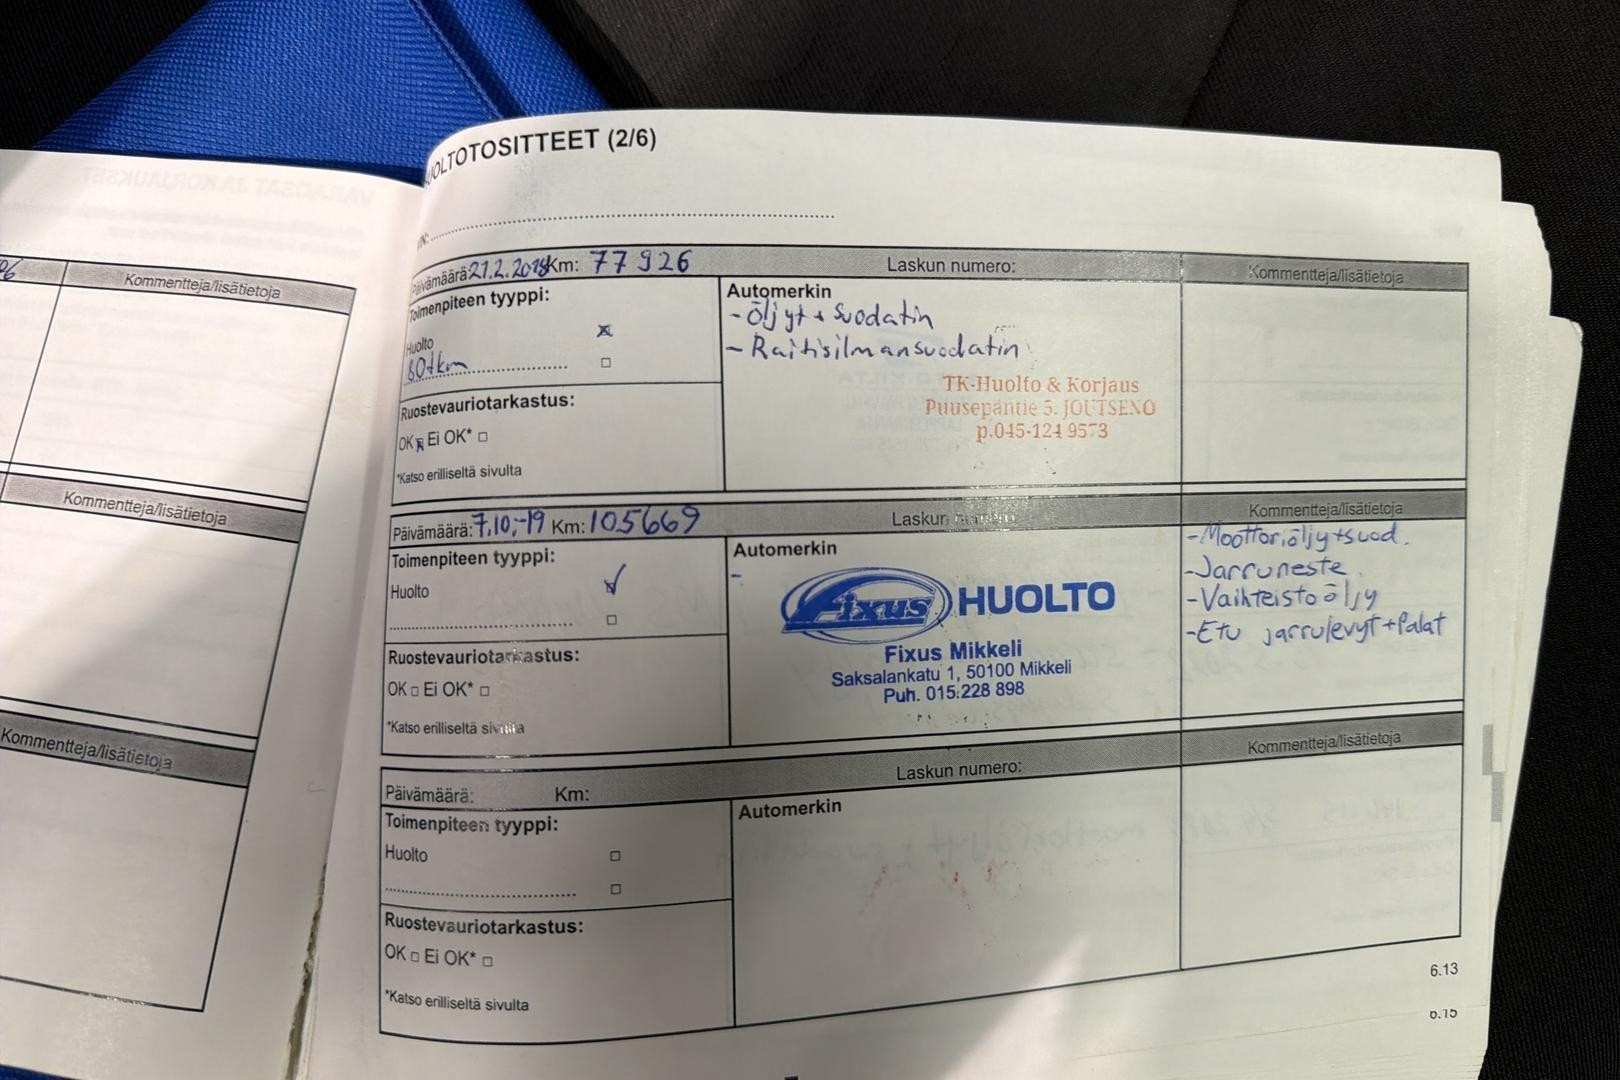 HUOLTOTOSITTEET (2/6)
VIN:
Päivämäärä: 21.2.2018 Km: 77926 Laskun numero: Kommentteja/lisätietoja
Toimenpiteen tyyppi:
Huolto
80tkm
Ruostevauriotarkastus:
OK Ei OK*
*Katso erilliseltä sivulta
Automerkin
- Öljyt + Suodatin
- Raitisilmansuodatin
TK-Huolto & Korjaus
Puusepäntie 5. JOUTSENO
p.045-124 9573
Päivämäärä: 7.10.-19 Km: 105669 Laskun Kommentteja/lisätietoja
Toimenpiteen tyyppi:
Huolto
Ruostevauriotarkastus:
OK Ei OK*
*Katso erilliseltä sivulta
Automerkin
-
Fixus HUOLTO
Fixus Mikkeli
Saksalankatu 1, 50100 Mikkeli
Puh. 015 228 898
-Moottoriöljy+suod.
-Jarruneste
-Vaihteistoöljy
-Etu jarrulevyt+Palat
Päivämäärä: Km: Laskun numero: Kommentteja/lisätietoja
Toimenpiteen tyyppi:
Huolto
Ruostevauriotarkastus:
OK Ei OK*
*Katso erilliseltä sivulta
Automerkin
6.13
6.15
Kommentteja/lisätietoja
Kommentteja/lisätietoja
Kommentteja/lisätietoja